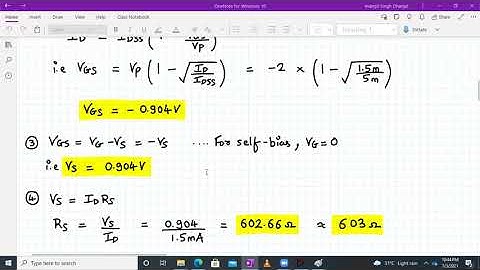 OneNote for Windows 10
Manjot Singh Dhanjal
Home Insert Draw View Help Class Notebook
Share
I_D = I_DSS (1 - V_GS/V_P)
i.e V_GS = V_P (1 - √(I_D/I_DSS)) = -2 × (1 - √(1.5m/5m))
V_GS = - 0.904V
③ V_GS = V_G - V_S = -V_S .... For self-bias, V_G = 0
i.e V_S = 0.904V
④ V_S = I_D R_S
R_S = V_S/I_D = 0.904/1.5mA = 602.66 Ω ≈ 603 Ω
Type here to search
31°C Light rain
10:44 PM